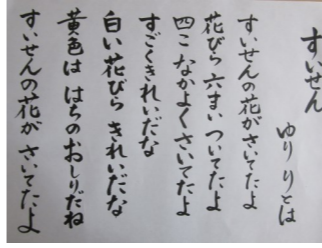 すいせん
ゆり りとは
すいせんの花がさいてたよ
花びら 六まい ついてたよ
四こ なかよくさいてたよ
すごくきれいだな
白い花びら きれいだな
黄色は はちのおしりだね
すいせんの花が さいてたよ